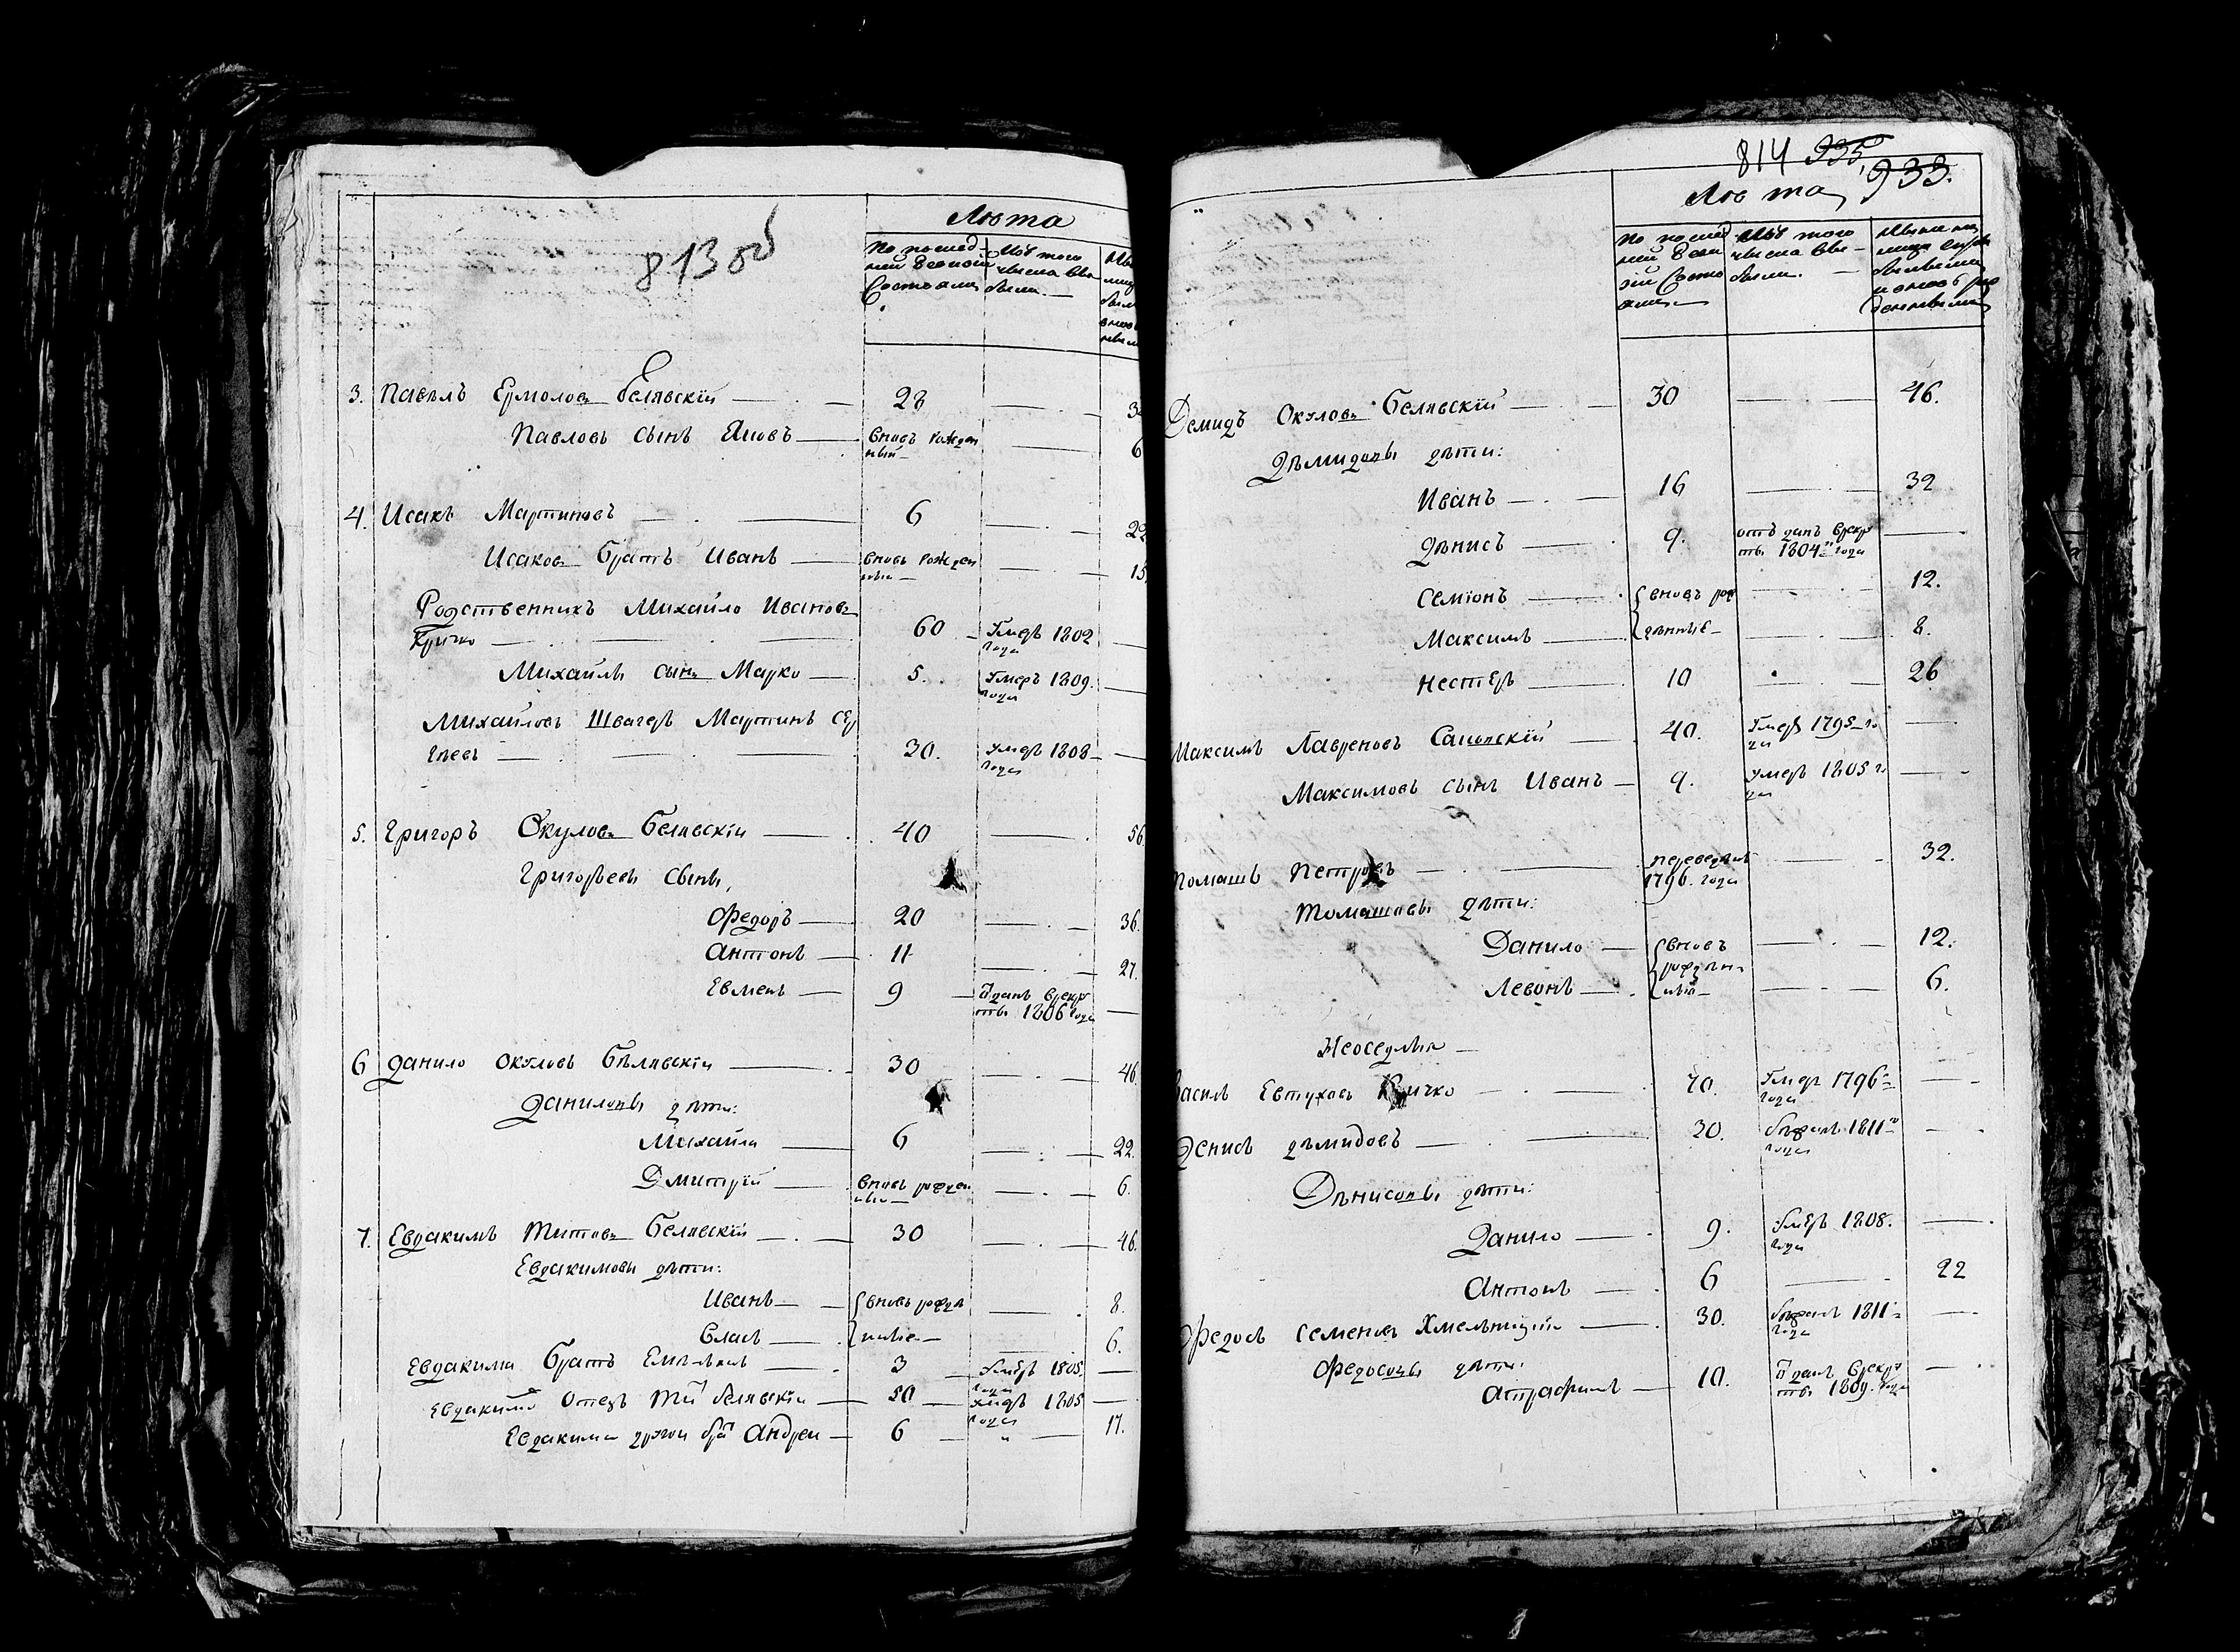 813 об
Лѣта
По послед- Изъ того
ней ревизіи числа вы-
Состояло были.
3. Павелъ Ермоловъ Белявскій 28
Павловъ сынъ Яковъ Вновь рожден 6
ный
4. Исакъ Мартиновъ 6 22
Исаковъ братъ Иванъ Вновь рожден 15
Родственникъ Михайло Ивановъ
Кричко 60 Умеръ 1802
года
Михайлы сынъ Марко 5. Умеръ 1809.
года
Михайловъ Швагеръ Мартинъ Сер
геевъ 30. Умеръ 1808
года
5. Григоръ Окуловъ Белявскій 40 56
Григорьевы сыны,
Федоръ 20 36.
Антонъ 11 27.
Евменъ 9 Ѿданъ врекру
тъ 1806 года
6 Данило Окуловъ Бѣлявскій 30 46.
Даниловы дѣти:
Михайла 6 22.
Дмитрій Вновь рожден 6.
7. Евдакимъ Титовъ Белявскій 30 46.
Евдакимовы дѣти:
Иванъ вновь рожде 8.
Власъ нные 6.
Евдакима братъ Емельянъ 3 Умеръ 1805.
года
Евдакима Отецъ Титъ Белявскій 50 умеръ 1805
года
Евдакима другой братъ Андреи 6 " 17.
814 935 933.
Лѣта
По послед Изъ того Ныне на
ней реви числа вы- лицо
зіи Состо были.
яло
Демидъ Окуловъ Белявскій 30 46.
Дѣмидовы дѣти:
Иванъ 16 32
Дѣнисъ 9. отъданъ врекру
ты 1804 года
Семіонъ вновь рож 12.
Максимъ дѣнные 8.
Нестеръ 10 26
Максимъ Лавреновъ 40. Умеръ 1795 го
да
Максимовъ сынъ Иванъ 9. умеръ 1805 го
да
Томашъ Петровъ переведенъ 32.
1796. года
Томашовы дѣти:
Данило вновь 12.
Левонъ рождѣн 6.
ные
Неоседлые
Василь Евтуховъ Кричко 70. Умеръ 1796
года
Денисъ дѣмидовъ 30. бѣжалъ 1811
года
Дѣнисовы дѣти:
Данило 9. Умеръ 1808.
года
Антонъ 6 22
Федосъ Семеновъ Хмельницкій 30. бѣжалъ 1811
года
Федосовы дѣти:
Астрафимъ 10. Ѿданъ врекру
ты 1809. года